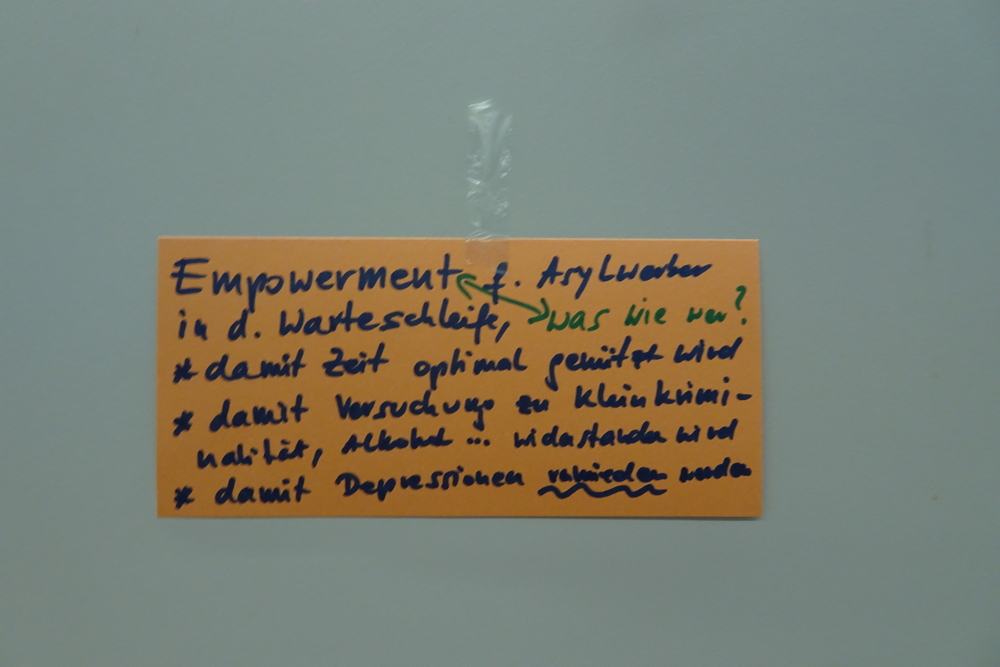 Empowerment f. Asylwerber
in d. Warteschleife, was wie wer?
* damit Zeit optimal genützt wird
* damit Versuchung zu Kleinkrimi-
nalität, Alkohol ... widerstanden wird
* damit Depressionen vermieden werden